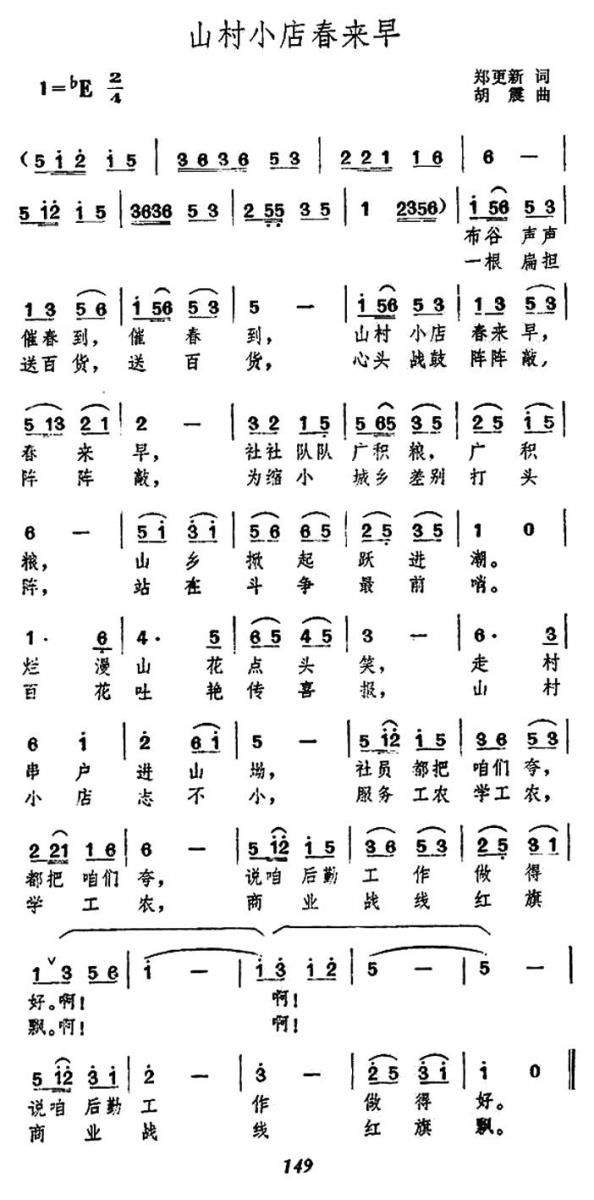 山村小店春来早
1=♭E 2/4
郑更新 词
胡 震 曲
(5 1 2 1 5 | 3 6 3 6 5 3 | 2 2 1 1 6 | 6 — |
5 12 1 5 | 3636 5 3 | 2 55 3 5 | 1 2356) | 1 56 5 3 |
布谷 声声
一根 扁担
1 3 5 6 | 1 56 5 3 | 5 — | 1 56 5 3 | 1 3 5 3 |
催春到, 催 春 到, 山村 小店 春来早,
送百货, 送 百 货, 心头 战鼓 阵阵敲,
5 13 2 1 | 2 — | 3 2 1 5 | 5 65 3 5 | 2 5 1 5 |
春 来 早, 社社 队队 广积 粮, 广 积
阵 阵 敲, 为缩 小 城乡 差别 打 头
6 — | 5 1 3 1 | 5 6 6 5 | 2 5 3 5 | 1 0 |
粮, 山 乡 掀 起 跃 进 潮。
阵, 站 在 斗 争 最 前 哨。
1· 6 | 4· 5 | 6 5 4 5 | 3 — | 6· 3 |
烂 漫 山 花 点 头 笑, 走 村
百 花 吐 艳 传 喜 报, 山 村
6 1 | 2 6 1 | 5 — | 5 12 1 5 | 3 6 5 3 |
串 户 进 山 坳, 社员 都把 咱们 夸,
小 店 志 不 小, 服务 工农 学工 农,
2 21 1 6 | 6 — | 5 12 1 5 | 3 6 5 3 | 2 5 3 2 |
都把 咱们 夸, 说咱 后勤 工 作 做 得
学 工 农, 商 业 战 线 红 旗
1 3 5 6 | 1 — | 1 3 1 2 | 5 — | 5 — |
好。啊! 啊!
飘。啊! 啊!
5 12 3 1 | 2 — | 3 — | 2 5 3 1 | 1 0 ‖
说咱 后勤 工 作 做 得 好。
商 业 战 线 红 旗 飘。
149